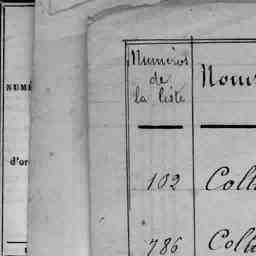 NUMÉ
d'or
Numéros
de
la liste
Noms
102 Coll
786 Coll